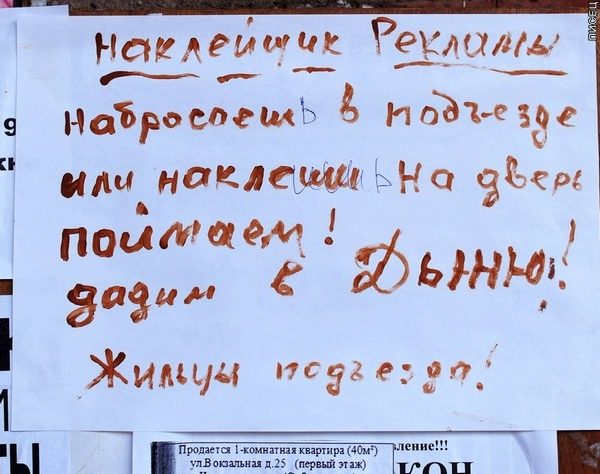 ПИСЕЦ
наклейщик Рекламы
набросаешь в подъезде
или наклеишь на дверь
поймаем!
дадим в Дыню!
Жильцы подъезда!
Продается 1-комнатная квартира (40м²)
ул.Вокзальная д.25 (первый этаж)
ление!!!
КОН